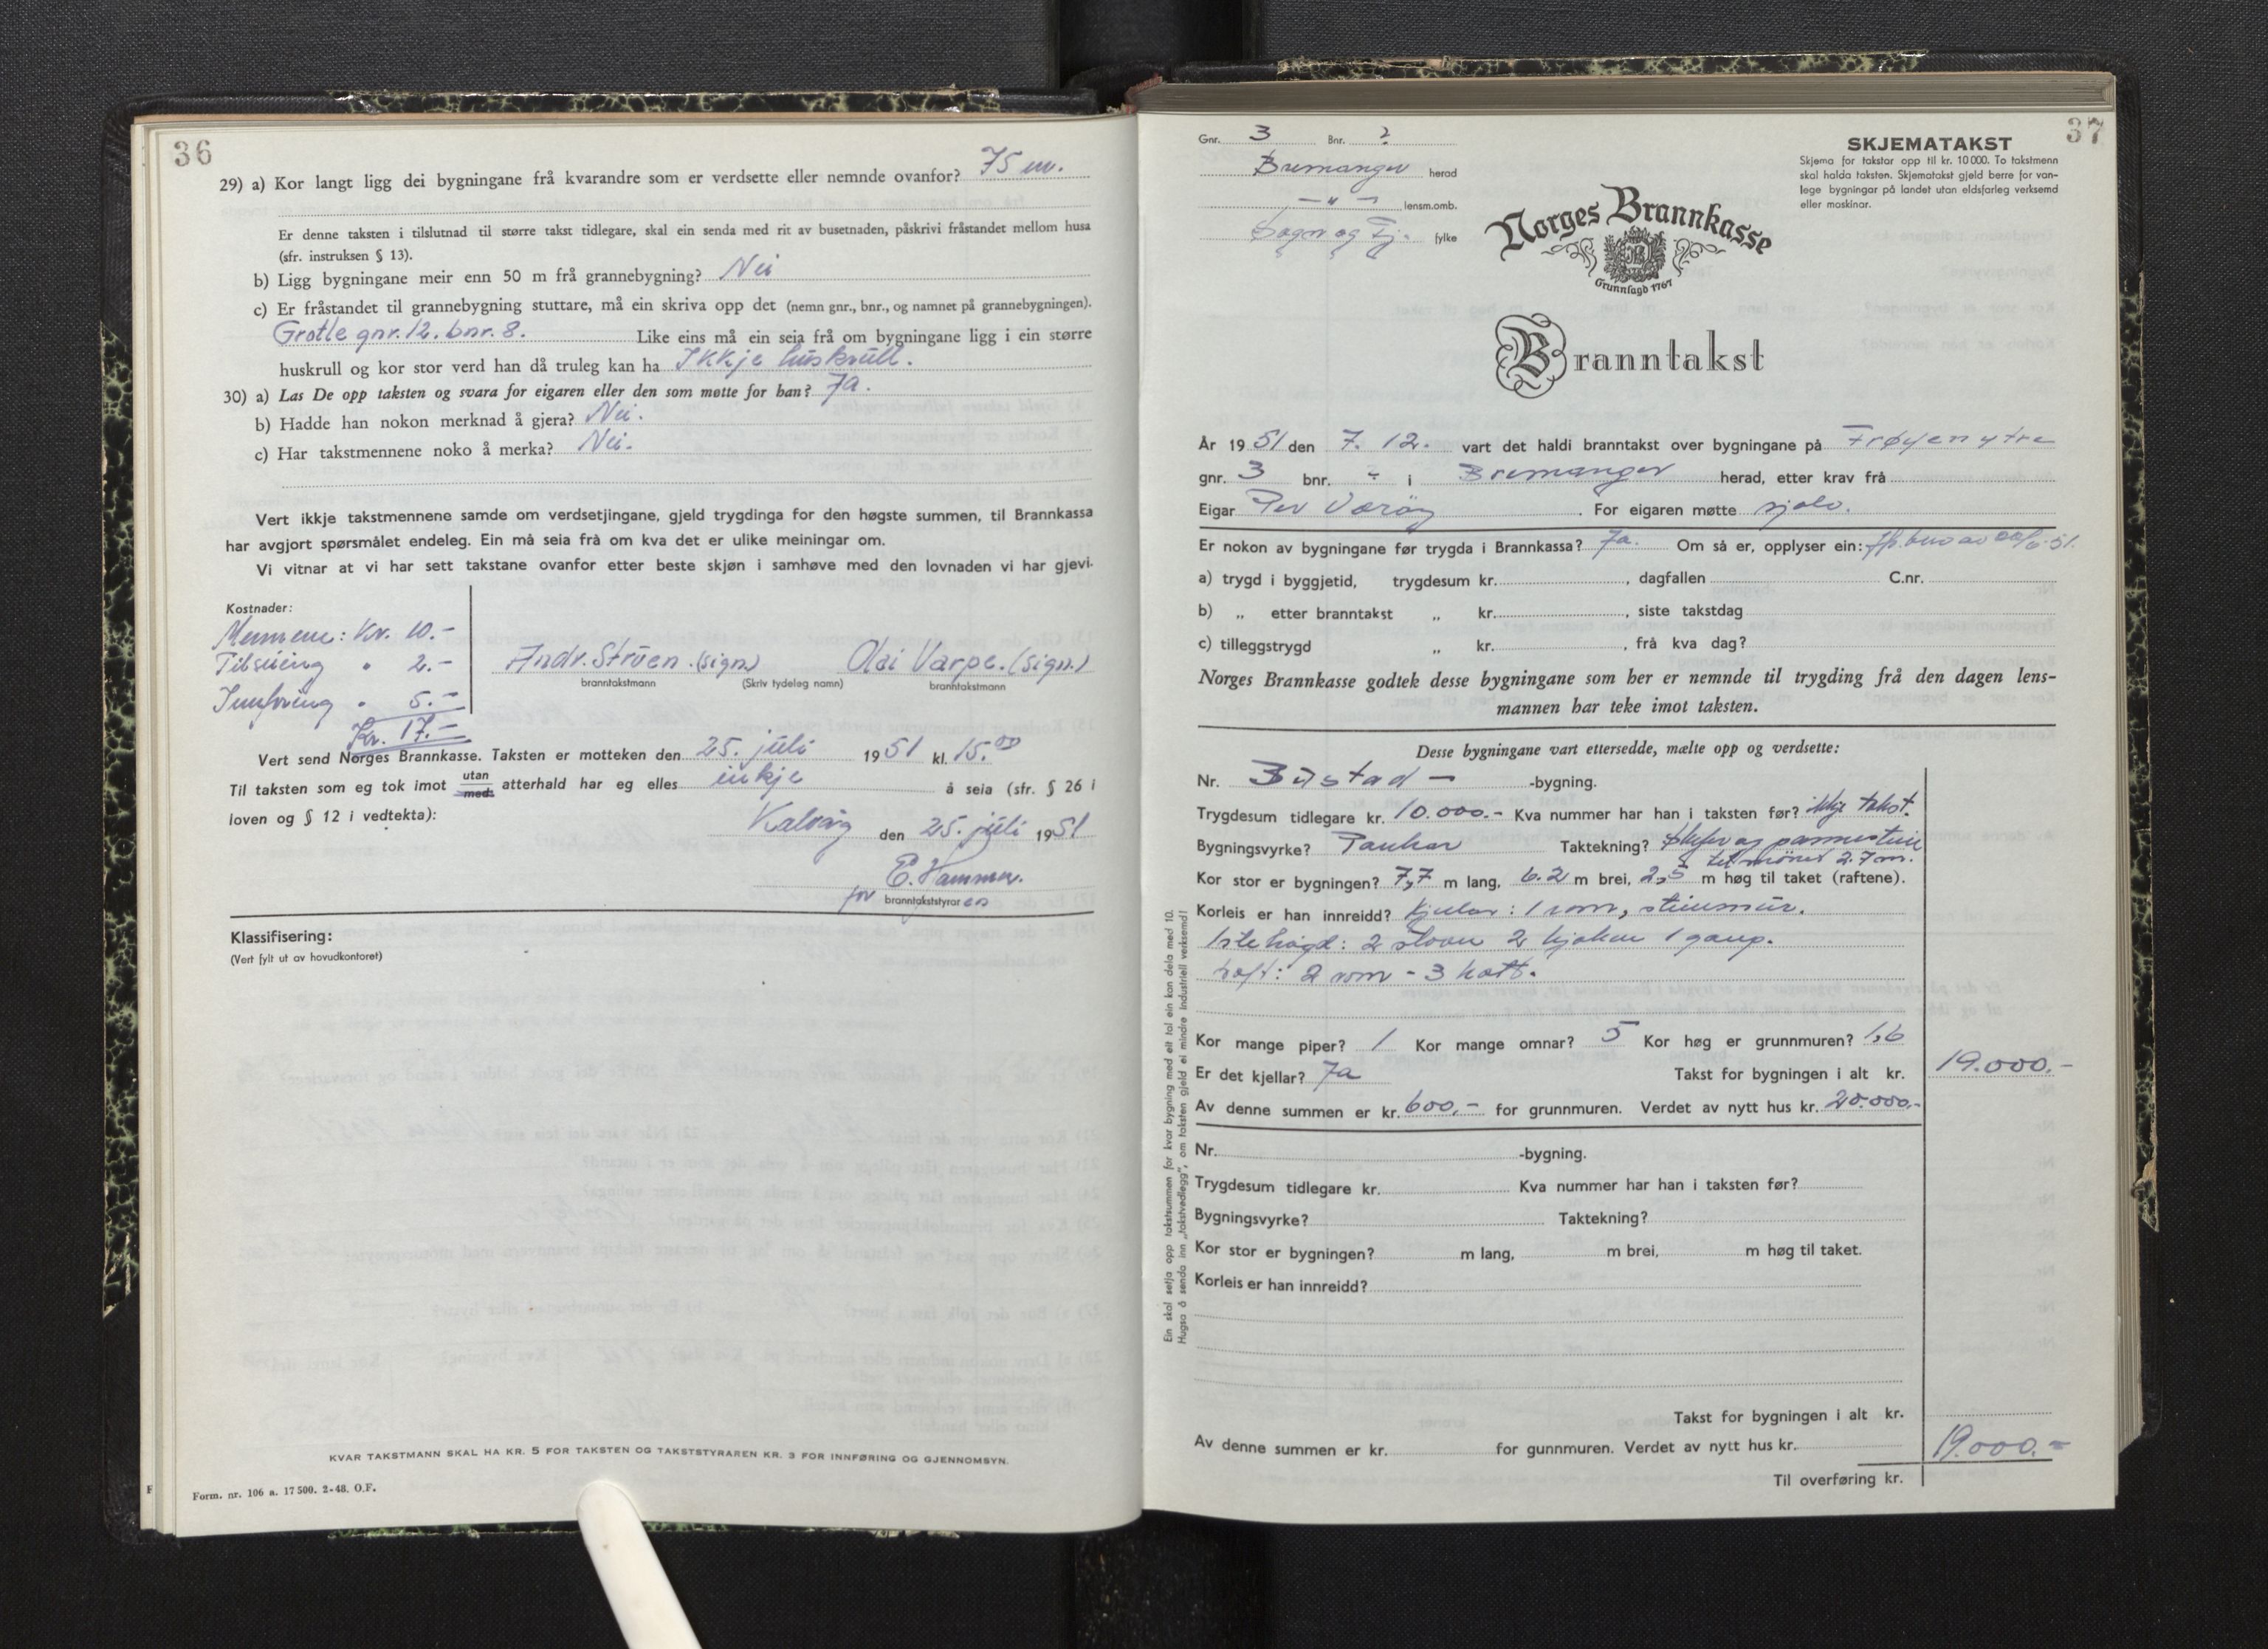 36
29) a) Kor langt ligg dei bygningane frå kvarandre som er verdsette eller nemnde ovanfor? 75 m.
Er denne taksten i tilslutnad til større takst tidlegare, skal ein senda med rit av busetnaden, påskrivi fråstandet mellom husa
(sfr. instruksen § 13).
b) Ligg bygningane meir enn 50 m frå grannebygning? Nei
c) Er fråstandet til grannebygning stuttare, må ein skriva opp det (nemn gnr., bnr., og namnet på grannebygningen).
Grotle gnr. 12. bnr. 8. Like eins må ein seia frå om bygningane ligg i ein større
huskrull og kor stor verd han då truleg kan ha Ikkje huskrull.
30) a) Las De opp taksten og svara for eigaren eller den som møtte for han? Ja.
b) Hadde han nokon merknad å gjera? Nei.
c) Har takstmennene noko å merka? Nei.
Vert ikkje takstmennene samde om verdsetjingane, gjeld trygdinga for den høgste summen, til Brannkassa
har avgjort spørsmålet endeleg. Ein må seia frå om kva det er ulike meiningar om.
Vi vitnar at vi har sett takstane ovanfor etter beste skjøn i samhøve med den lovnaden vi har gjevi.
Kostnader:
Mennene: Kr. 10.-
Tilsiing " 2.-
Innføring " 5.-
Kr. 17.-
Andr. Strøen. (sign.) Olai Varpe. (sign.)
branntakstmann (Skriv tydeleg namn) branntakstmann
Vert send Norges Brannkasse. Taksten er motteken den 25. juli 1951 kl. 15.00
Til taksten som eg tok imot utan med atterhald har eg elles inkje å seia (sfr. § 26 i
loven og § 12 i vedtekta):
Kalvåg den 25. juli 1951
E. Hammer.
for branntakststyraren
Klassifisering:
(Vert fylt ut av hovudkontoret)
KVAR TAKSTMANN SKAL HA KR. 5 FOR TAKSTEN OG TAKSTSTYRAREN KR. 3 FOR INNFØRING OG GJENNOMSYN.
Form. nr. 106 a. 17500. 2-48. O.F.
37
Gnr. 3 Bnr. 2
Bremanger herad
-"- lensm.omb.
Sogn og Fj. fylke
SKJEMATAKST
Skjema for takstar opp til kr. 10000. To takstmenn
skal halda taksten. Skjematakst gjeld berre for van-
lege bygningar på landet utan eldsfarleg verksemd
eller maskinar.
Norges Brannkasse
Grunnlagd 1767
Branntakst
År 1951 den 7. 12. vart det haldi branntakst over bygningane på Frøyen ytre
gnr. 3 bnr. i Bremanger herad, etter krav frå
Eigar Per Værøy. For eigaren møtte sjølv.
Er nokon av bygningane før trygda i Brannkassa? Ja. Om så er, opplyser ein:
a) trygd i byggjetid, trygdesum kr. , dagfallen C.nr.
b) „ etter branntakst „ kr. , siste takstdag
c) tilleggstrygd „ kr. , frå kva dag?
Norges Brannkasse godtek desse bygningane som her er nemnde til trygding frå den dagen lens-
mannen har teke imot taksten.
Desse bygningane vart ettersedde, mælte opp og verdsette:
Nr. Bustad - -bygning.
Trygdesum tidlegare kr. 10.000.- Kva nummer har han i taksten før? ikkje takst.
Bygningsvyrke? Plankar Taktekning? skifer og pannestein
til mönet 2.7 m.
Kor stor er bygningen? 7,7 m lang, 6.2 m brei, 2,5 m høg til taket (raftene).
Korleis er han innreidd? Kjellar: 1 rom, steinmur.
1ste høgd: 2 stover 2 kjøken 1 gang.
Loft: 2 rom - 3 kott.
Kor mange piper? 1 Kor mange omnar? 5 Kor høg er grunnmuren? 1,6
Er det kjellar? Ja Takst for bygningen i alt kr. 19.000.-
Av denne summen er kr. 600,- for grunnmuren. Verdet av nytt hus kr. 20.000.-
Nr. -bygning.
Trygdesum tidlegare kr. Kva nummer har han i taksten før?
Bygningsvyrke? Taktekning?
Kor stor er bygningen? m lang, m brei, m høg til taket.
Korleis er han innreidd?
Takst for bygningen i alt kr.
Av denne summen er kr. for gunnmuren. Verdet av nytt hus kr.
19.000.-
Til overføring kr.
Ein skal setja opp takstsummen for kvar bygning med eit tal ein kan dela med 10.
Hugsa å senda inn „takstvedlegg", om taksten gjeld ei mindre industriell verksemd!